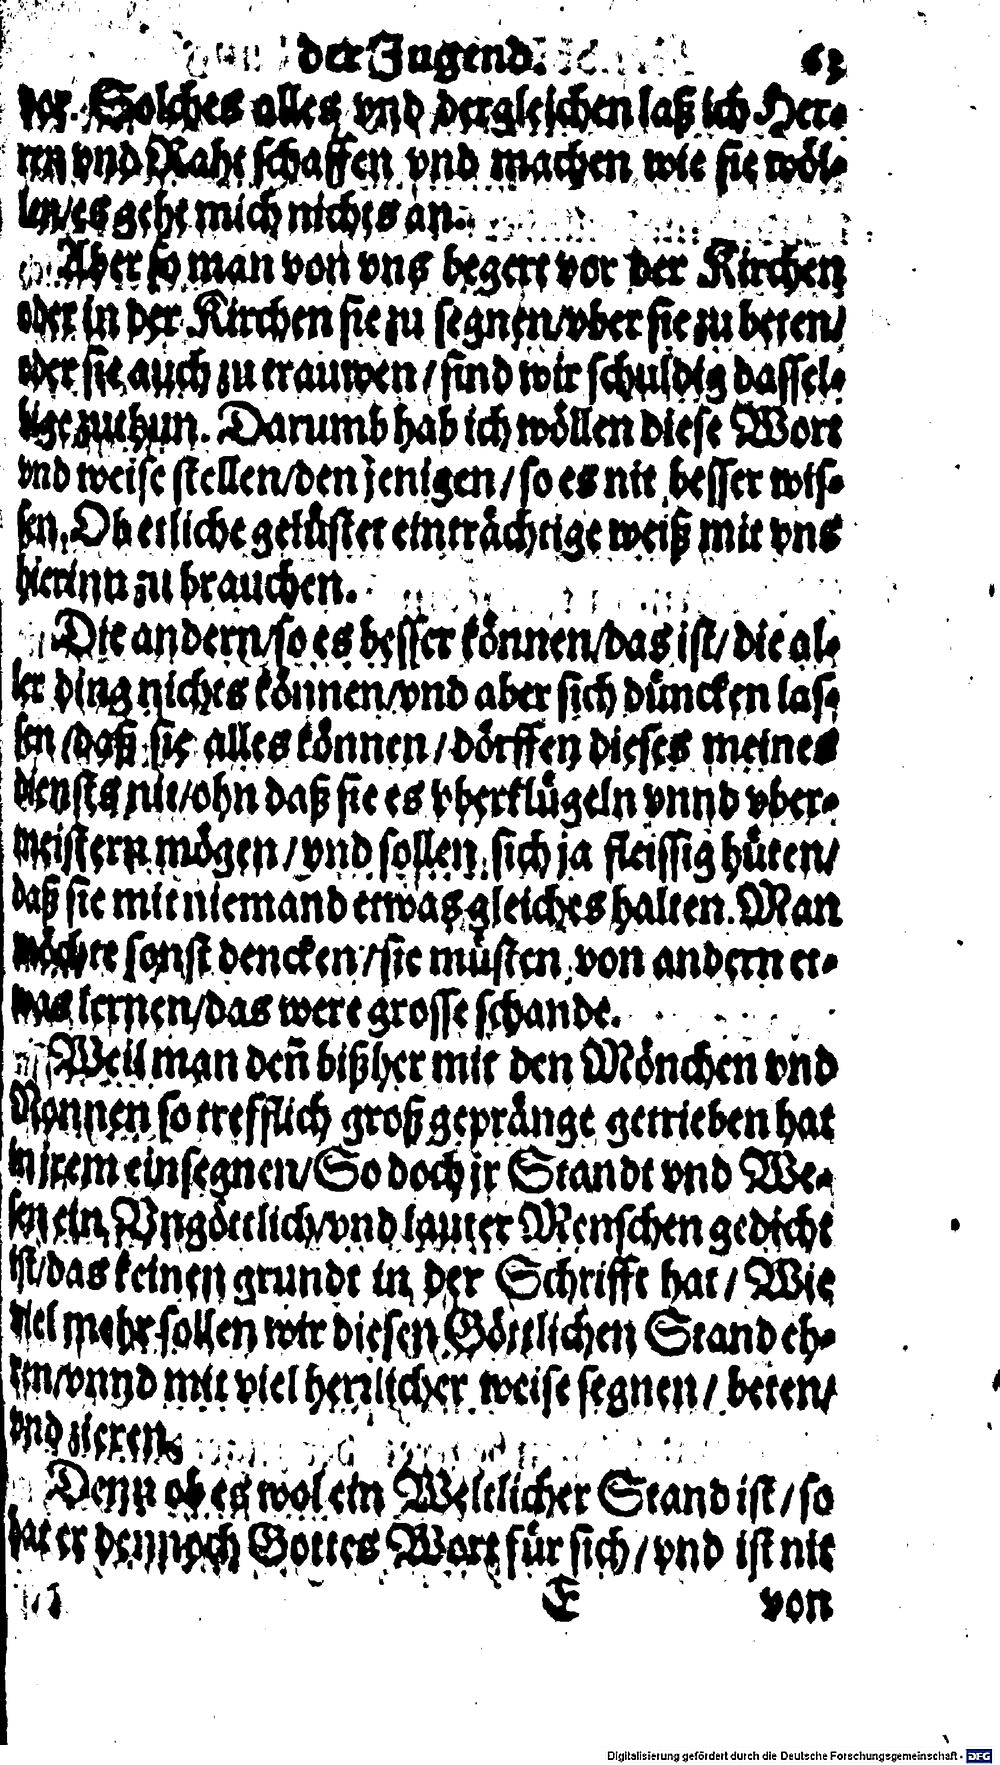 der Jugend. 63
vor. Solches alles vnd dergleichen laß ich Her-
ren vnd Raht schaffen vnd machen wie sie wöl-
len/es gehe mich nichts an.
Aber so man von vns begert vor der Kirchen
oder in der Kirchen sie zu segnen/vber sie zu beten/
oder sie auch zu trauwen/sind wir schuldig dassel-
bige zuthun. Darumb hab ich wöllen diese Wort
vnd weise stellen/den jenigen/so es nit besser wis-
sen, Ob etliche gelüstet einträchtige weiß mit vns
hierinn zu brauchen.
Die andern/so es besser können/das ist/die al-
ler ding nichts können/vnd aber sich düncken las-
sen/daß sie alles können/dörffen dieses meines
diensts nit/ohn daß sie es vberklügeln vnnd vber-
meistern mögen/vnd sollen sich ja fleissig hüten/
daß sie mit niemand etwas gleiches halten. Man
möchte sonst dencken/sie müsten von andern et-
was lernen/das were grosse schande.
Weil man deñ bißher mit den Mönchen vnd
Nonnen so trefflich groß gepränge getrieben hat
in irem einsegnen/So doch jr Standt vnd We-
sen ein Vngöttlich/vnd lauter Menschen gedicht
ist/das keinen grundt in der Schrifft hat/Wie
viel mehr sollen wir diesen Göttlichen Stand eh-
ren/vnnd mit viel herrlicher weise segnen/beten/
vnd zieren.
Denn ob es wol ein Weltlicher Stand ist/so
hat er dennoch Gottes Wort für sich/vnd ist nit
E von
Digitalisierung gefördert durch die Deutsche Forschungsgemeinschaft - DFG